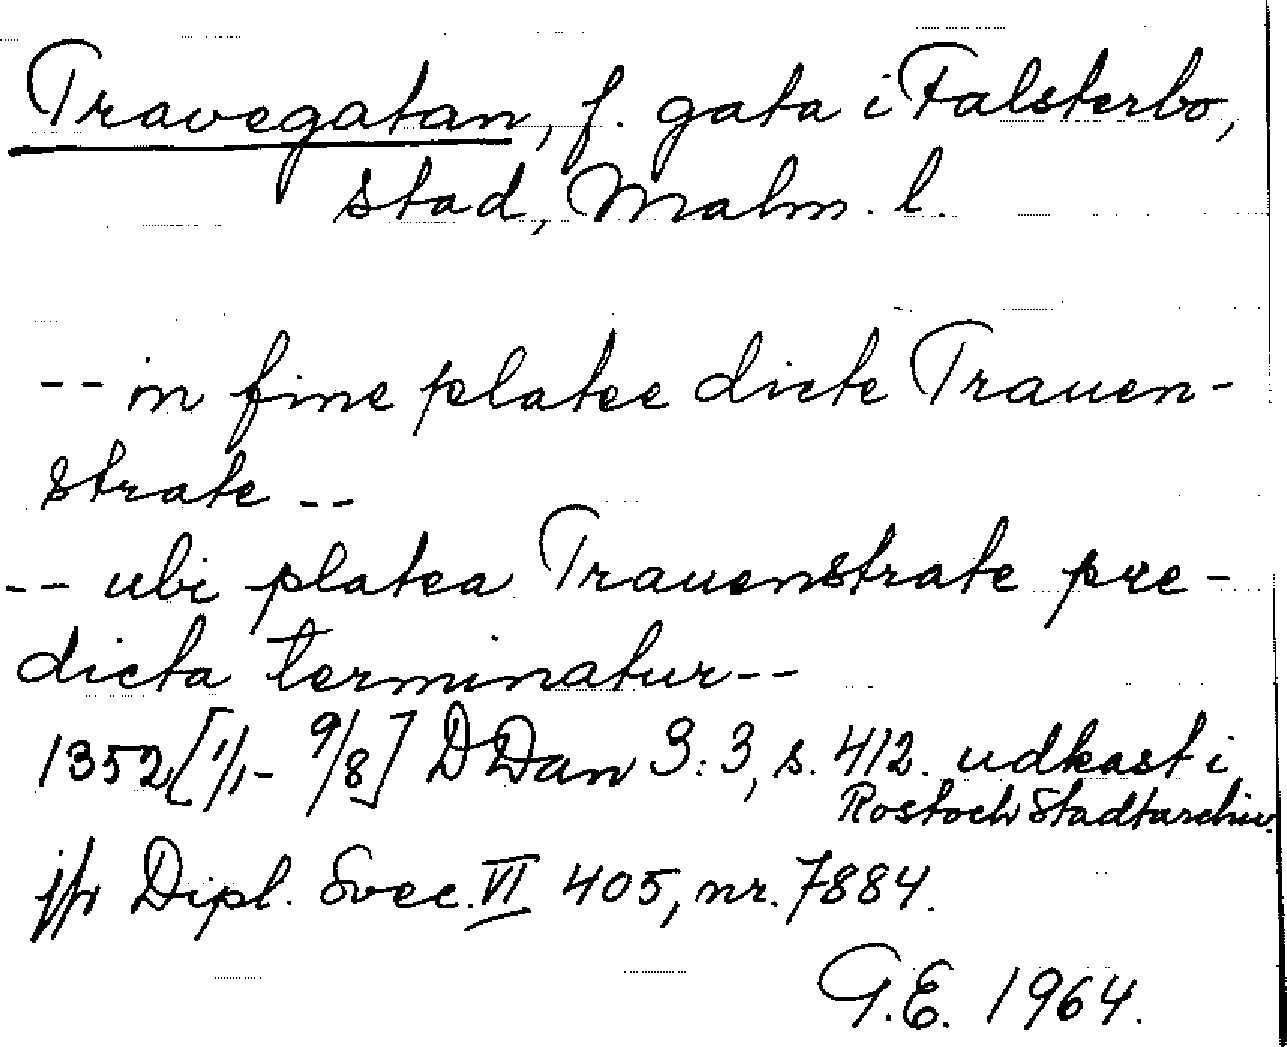 Travegatan, f. gata i Falsterbo,
stad, Malm. l.
-- in fine platee dicte Trauen-
strate --
-- ubi platea Trauenstrate pre-
dicta terminatur --
1352 [1/1- 9/8] DDan 3:3, s. 412. udkast i
Rostock Stadtarchiv.
jfr Dipl. Svec. VI 405, nr. 7884.
G.E. 1964.